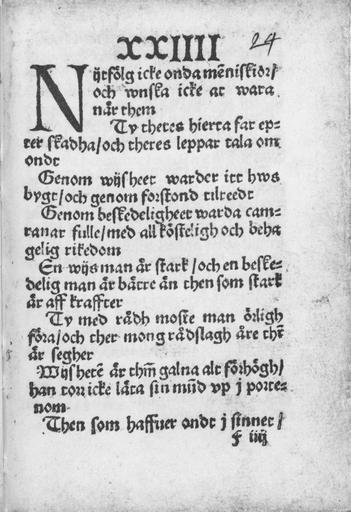 XXIIII 24
Nijtfölg icke onda mēniskior/
och wnska icke at wara
når them
Ty theres hierta far ep-
ter skadha/och theres leppar tala om
ondt
Genom wijsheet warder itt hws
bygt/och genom forstond tilreedt
Genom beskedeligheet warda cam-
ranar fulle/med all kösteligh och beha
gelig rikedom
En wijs man år stark/och en beske-
delig man år båttre ån then som stark
år aff kraffter
Ty med rådh moste man örligh
föra/och ther mong rådslagh åre thr̄
år segher
Wijshetē år thm̄ galna alt förhögh/
han torr icke låta sin mūd vp j porte-
nom
Then som haffuer ondt j sinnet/
f iiij